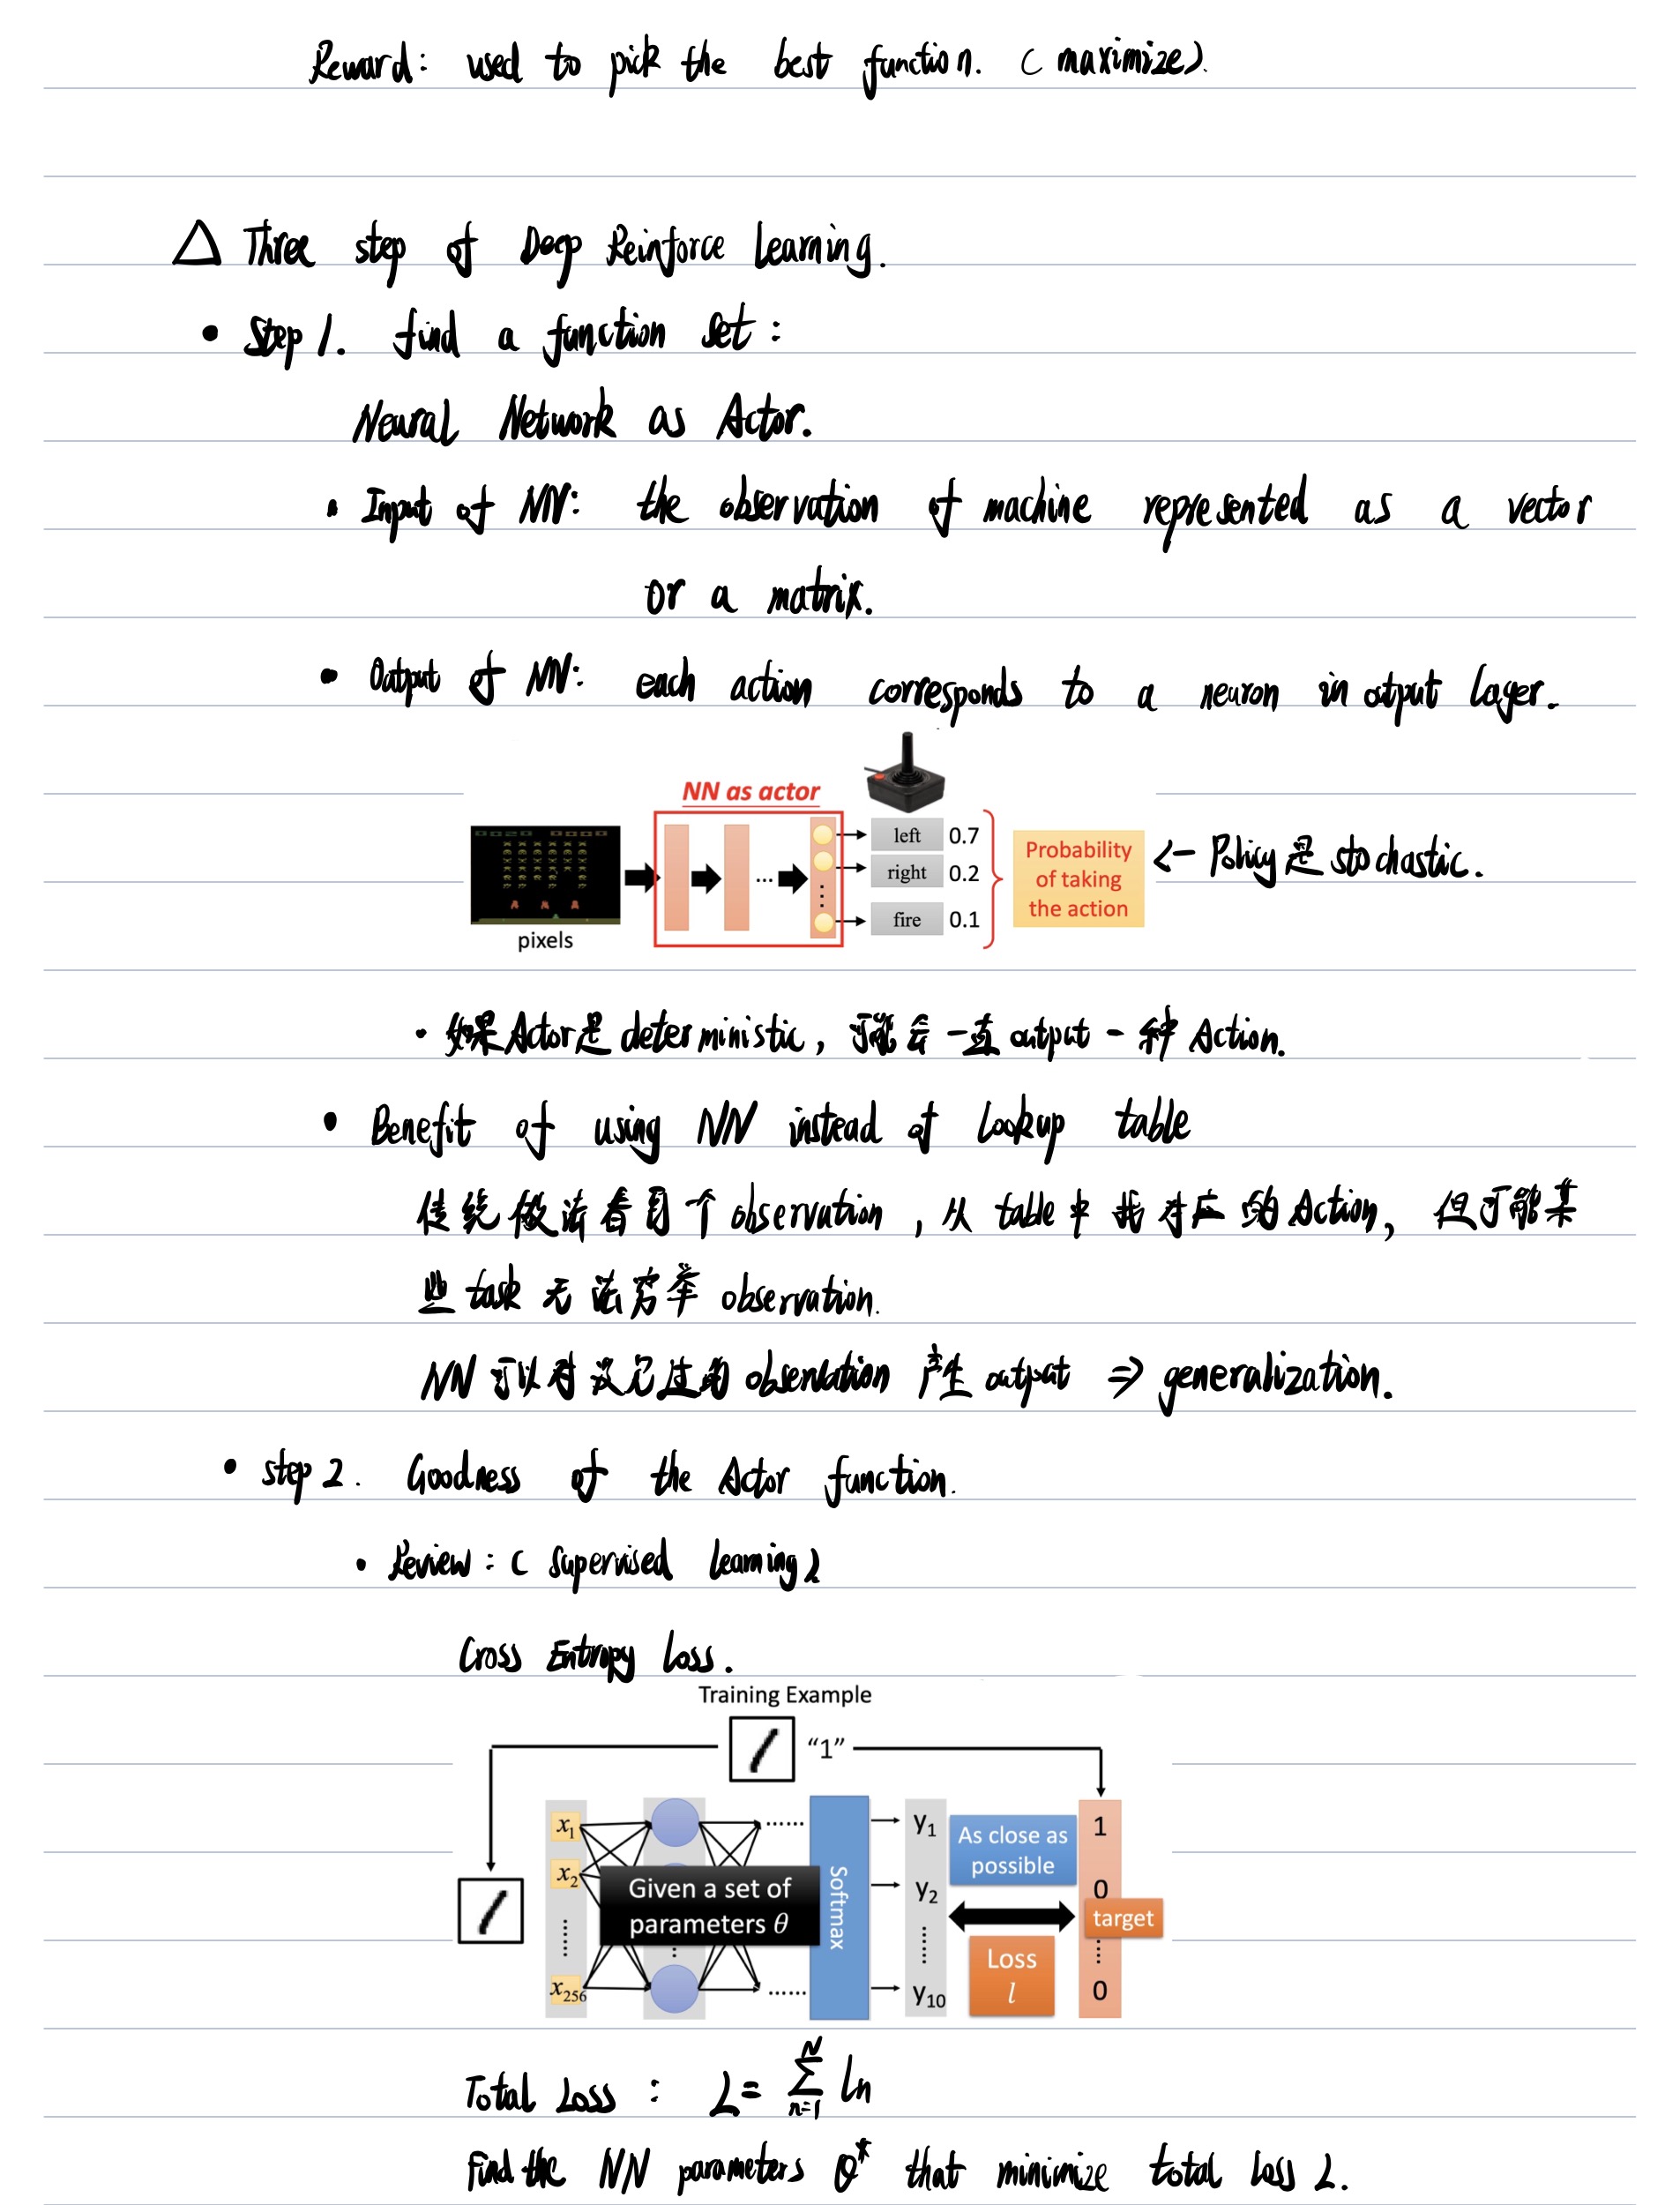 Reward: used to pick the best function. (maximize).
△ Three step of Deep Reinforce Learning.
• Step 1. find a function set:
Neural Network as Actor.
• Input of NN: the observation of machine represented as a vector
or a matrix.
• Output of NN: each action corresponds to a neuron in output layer.
NN as actor
left 0.7
right 0.2
fire 0.1
Probability
of taking
the action
← Policy是stochastic.
pixels
• 如果Actor是deterministic, 可能会一直output一种Action.
• Benefit of using NN instead of Lookup table
传统做法看到个observation, 从table中找对应的Action, 但可能某
些task无法穷举observation.
NN可以对没见过的observation产生output ⇒ generalization.
• step 2. Goodness of the Actor function.
• Review: (supervised learning)
Cross Entropy Loss.
Training Example
“1”
x1
x2
......
x256
Given a set of
parameters θ
......
......
Softmax
y1
y2
......
y10
As close as
possible
Loss
l
1
0
target
0
Total Loss: L = ∑_{n=1}^{N} ln
Find the NN parameters θ* that minimize total loss L.